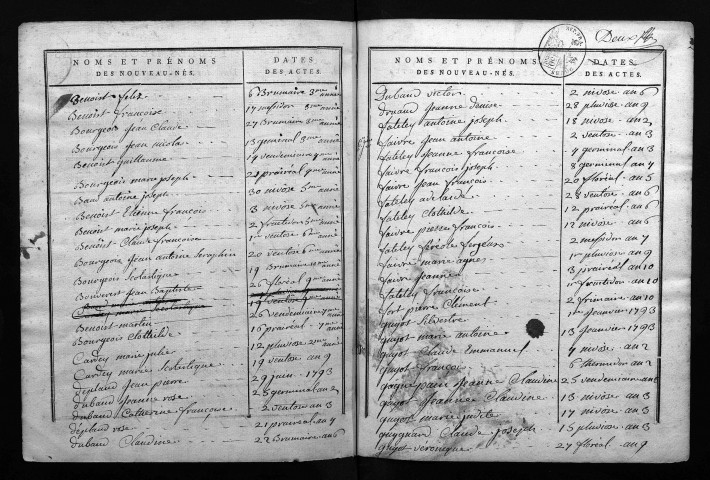 NOMS ET PRÉNOMS
DES NOUVEAU-NÉS.
DATES
DES ACTES.
Benoist felix 6 Brumaire 3me année
Benoist francoise 17 messidor 3me année
Bourgeois Jean Claude 27 Brumaire 3me année
Bourgeois Jean nicola 13 germinal 3me année
Benoist guillaume 19 vendemiaire
Bourgeois marie joseph 21 prairéal
Baud antoine joseph 30 nivose 5me année
Benoist Etienne françois 3 nivose 5me année
Benoist marie joseph 2 fructidor 5me année
Benoist Claude francoise 1er ventose 6me année
Bourgeois jean antoine Seraphin 20 ventose 6me année
Bourgeois Scolastique 19 Brumaire
Bonveret Jean Baptiste 26 floréal 9me année
19 ventose 9me année
Benoist martin 26 vendemiaire
Bourgeois Clothilde 16 prairéal
Cardey marie julie 12 pluviose
Cardey marie Scolastique 19 ventose an 9
déplaud Jean pierre 29 juin 1793
dubaud Jeanne rose 25 germinal an 2
dubaud Catherine françoise 2 ventose an 3
déplaud rose 21 prairéal an 4
dubaud Claudine 22 Brumaire an 6
Deux
NOMS ET PRÉNOMS
DES NOUVEAU-NÉS.
DATES
DES ACTES.
Dubaud victor 2 nivose an 6
Drouard Jeanne Denise 28 pluviose an 9
fateley antoine joseph 18 nivose an 2
faivre Jean antoine 2 ventose an 3
fateley Jeanne francoise 4 germinal an 3
faivre francois joseph 8 germinal an 4
faivre Jean francois 20 floréal an 5
fateley adelaide 28 ventose an 6
fateley Clothilde 12 prairéal an 6
faivre pierre francois 12 nivose an 6
fateley fereole fergeux 2 messidor an 7
faivre marie agnes 1er pluviose an 9
faivre Jeanne 3 prairéal an 10
fateley francoise 1er fructidor an 10
fort pierre Clement 2 frimaire an 10
guyot Silvestre 1er Janvier 1793
guyot marie antoine 13 Janvier 1793
guyot Claude Emmanuel 4 nivose an 2
guyot françois 6 thermidor an 2
gagne pain Jeanne Claudine 25 vendemiaire an
guyot Jeannee Claudine 13 nivose an 3
guyot marie judite 17 nivose an 3
guyguard Claude joseph 15 pluviose an 3
guyot veronique 27 floréal an 9